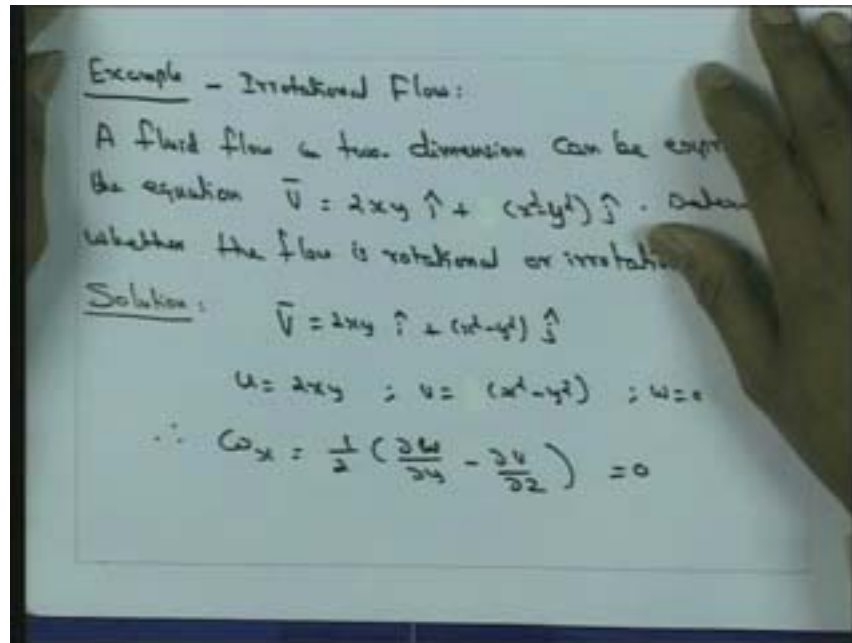 Example - Irrotational Flow:
A fluid flow in two dimension can be expr
the equation V̄ = 2xy î + (x²-y²) ĵ .
whether the flow is rotational or irrotation
Solution:
V̄ = 2xy î + (x²-y²) ĵ
u = 2xy ; v = (x²-y²) ; w=0
∴ ωₓ = 1/2 (∂w/∂y - ∂v/∂z) = 0